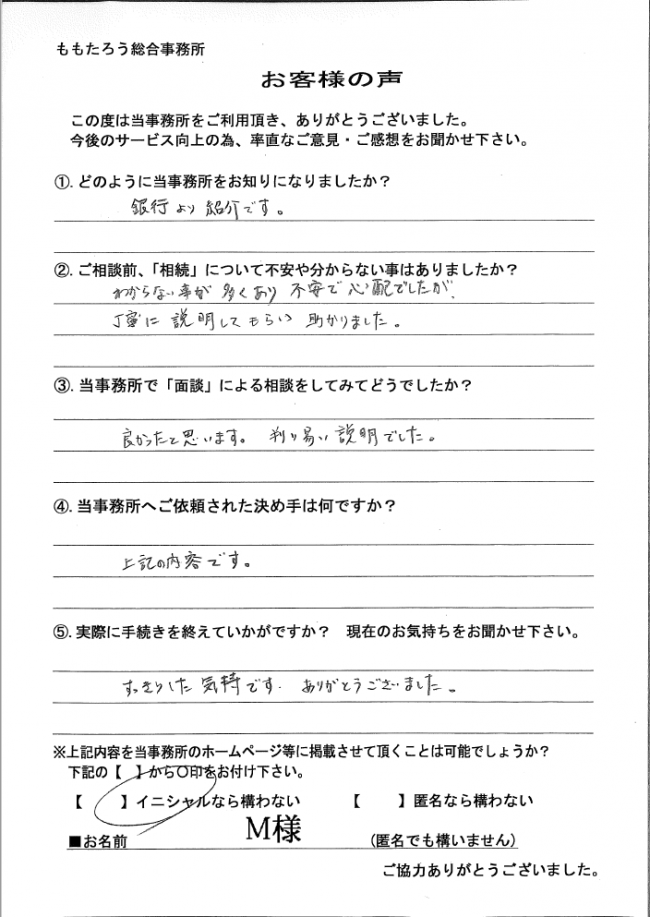 ももたろう総合事務所
お客様の声
この度は当事務所をご利用頂き、ありがとうございました。
今後のサービス向上の為、率直なご意見・ご感想をお聞かせ下さい。
①. どのように当事務所をお知りになりましたか？
銀行より紹介です。
②. ご相談前、「相続」について不安や分からない事はありましたか？
わからない事が多くあり不安で心配でしたが、
丁寧に説明してもらい助かりました。
③. 当事務所で「面談」による相談をしてみてどうでしたか？
良かったと思います。判り易い説明でした。
④. 当事務所へご依頼された決め手は何ですか？
上記の内容です。
⑤. 実際に手続きを終えていかがですか？　現在のお気持ちをお聞かせ下さい。
すっきりした気持です. ありがとうございました。
※上記内容を当事務所のホームページ等に掲載させて頂くことは可能でしょうか？
下記の【　】から〇印をお付け下さい。
【　　】イニシャルなら構わない　　【　　】匿名なら構わない
■お名前　M様　（匿名でも構いません）
ご協力ありがとうございました。